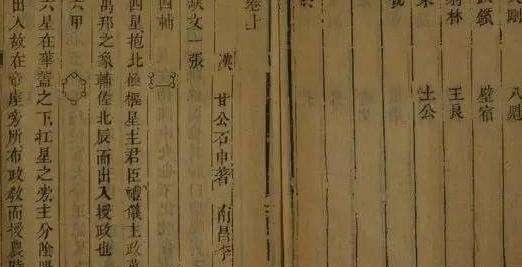 八魁
鑕 壁宿
林 王良
土公
卷上
漢 甘公石申著 南昌李
缺文一張
四輔
四星抱北極樞星主君臣禮儀主政萬
萬邦之象輔佐北辰而出入授政也
六甲
六星在華蓋之下杠星之旁主分陰陽
出入故在帝座旁所布政教而授農時